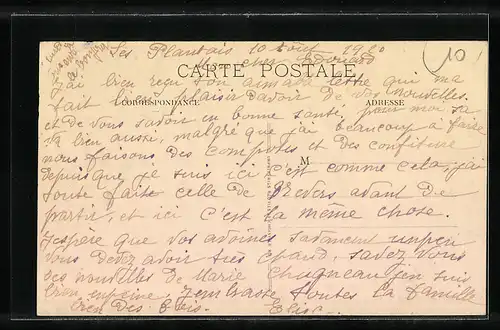 Les Plantais 10 Aout 1920
Mon cher Edouard
CARTE POSTALE
J'ai bien reçu ton aimable lettre qui ma
fait bien plaisir davoir de vos nouvelles.
CORRESPONDANCE
ADRESSE
et de vous savoir en bonne santé. pour moi sa
va bien aussi, malgré que j'ai beaucoup à faire
nous faisons des compotes et des confiture
M
depuis que je suis ici c'est comme cela, j'ai
toute faite celle de avant de
partir, et ici C'est la même chose.
J'espère que vos avoines savancent unpeu
vous devez avoir très chaud, savez vous
des nouvelles de Marie Chagneau j'en suis
bien en peine Jembrasse toutes la famille
bien des
Elise
10